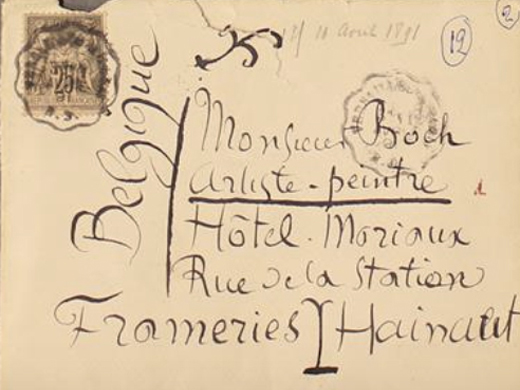 18 Aout 1891
12
2
25
Belgique
Monsieur Boch
Artiste-peintre
Hôtel. Moriaux
Rue de la Station
Frameries Hainaut